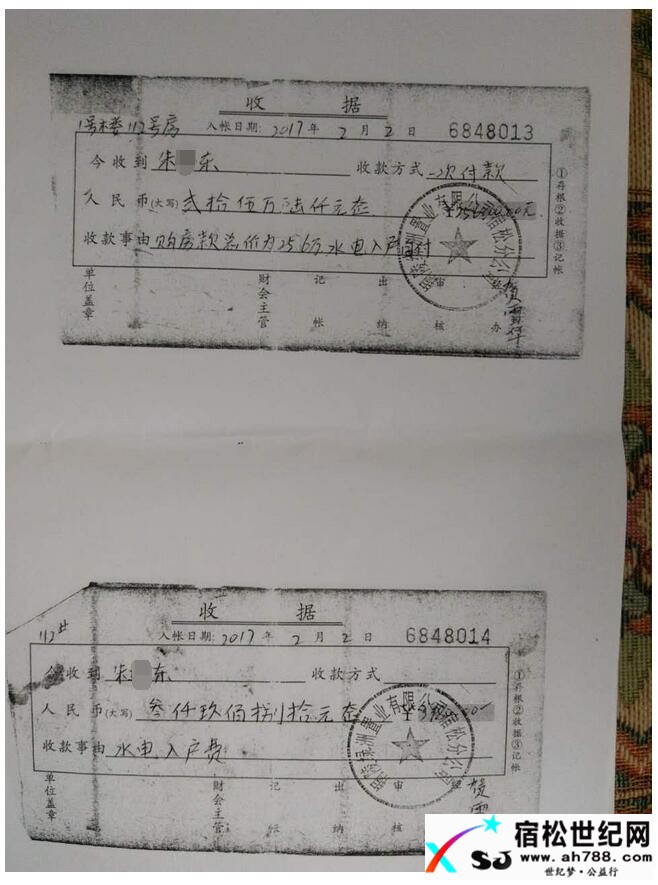 收 据
1号楼 112号房 入帐日期: 2017年 2月 2日 6848013
今收到 朱 东 收款方式 一次付款
人民币(大写) 贰拾伍万陆仟元整
收款事由 购房款总价为25.6万水电入户
单位盖章 财会主管 记帐 出纳 审核 办
①存根②收据③记帐
置业有限公司宿松分公司
收 据
112# 入帐日期: 2017年 2月 2日 6848014
今收到 朱 东 收款方式
人民币(大写) 叁仟玖佰捌拾元整
收款事由 水电入户费
单位盖章 财会主管 记帐 出纳 审核
①存根②收据③记帐
置业有限公司宿松分公司
宿松世纪网
XSJ
www.ah788.com
世纪梦·公益行